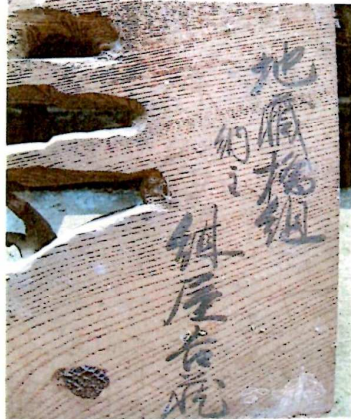 地蔵橋組
納主
屋吉蔵